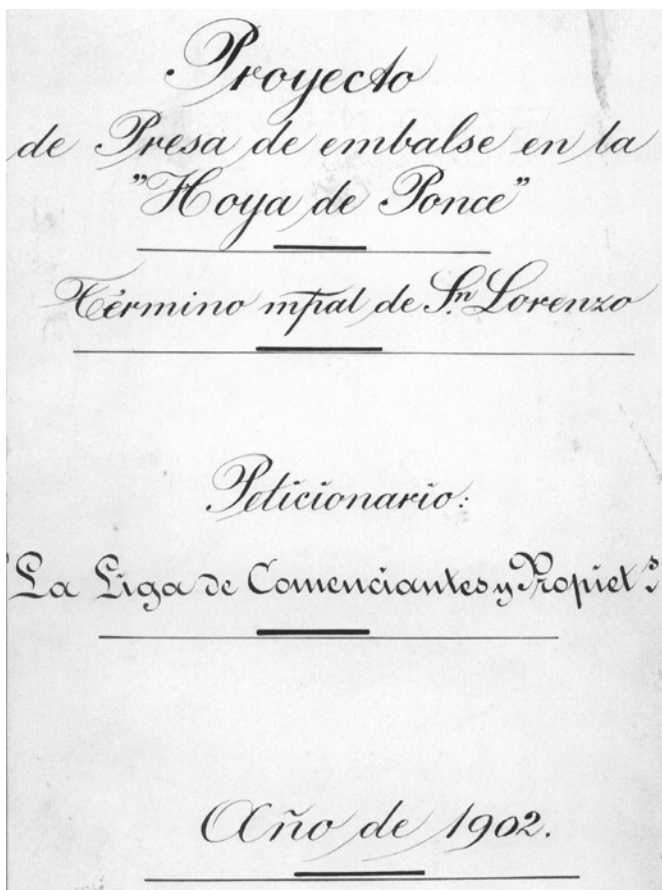 Proyecto
de Presa de embalse en la
"Hoya de Ponce"
Término mpal de Sn. Lorenzo
Peticionario:
"La Liga de Comenciantes y Propiets.
Año de 1902.